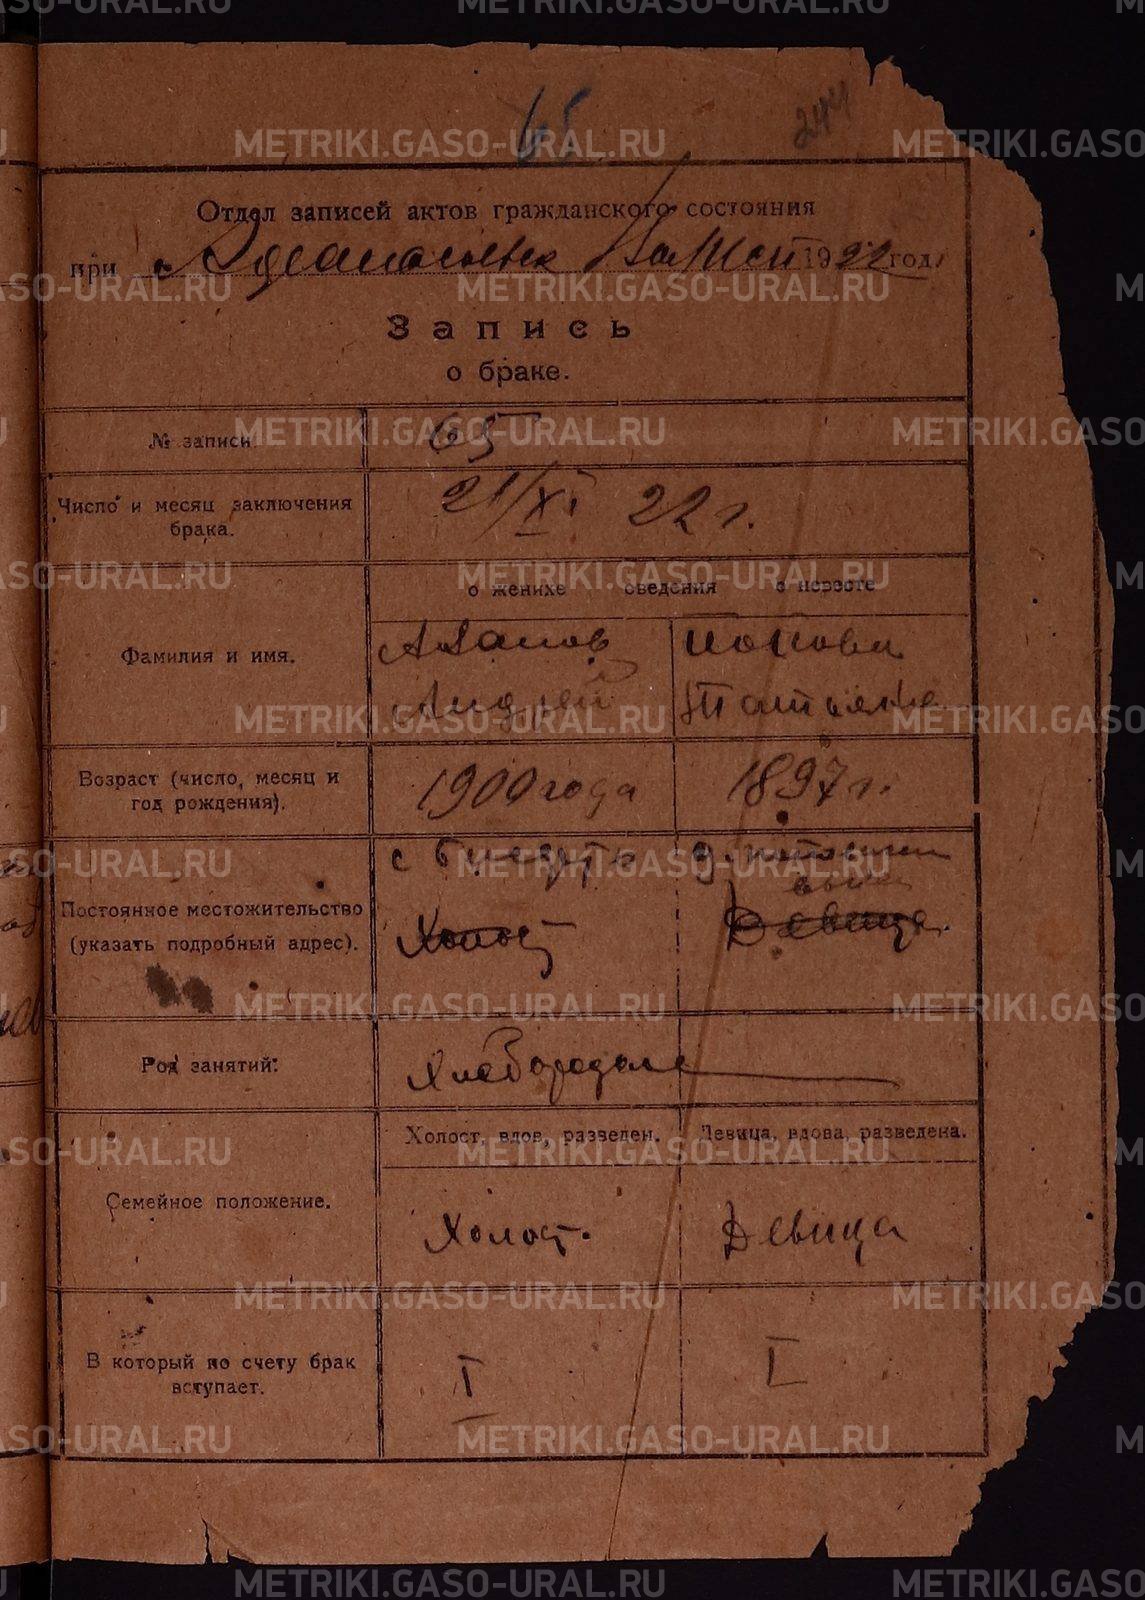 65
244
Отдел записей актов гражданского состояния
при с 1922 год
Запись
о браке.
№ записи. 65
Число и месяц заключения брака. 21/XI 22 г.
о женихе сведения о невесте
Фамилия и имя.
Попова
Андрей Татьяна
Возраст (число, месяц и год рождения). 1900 года 1897 г.
Постоянное местожительство (указать подробный адрес).
с д.
Холост Девица.
Род занятий: Хлебородание
Холост, вдов, разведен. Девица, вдова, разведена.
Семейное положение. Холост. Девица
В который по счету брак вступает. I I
METRIKI.GASO-URAL.RU